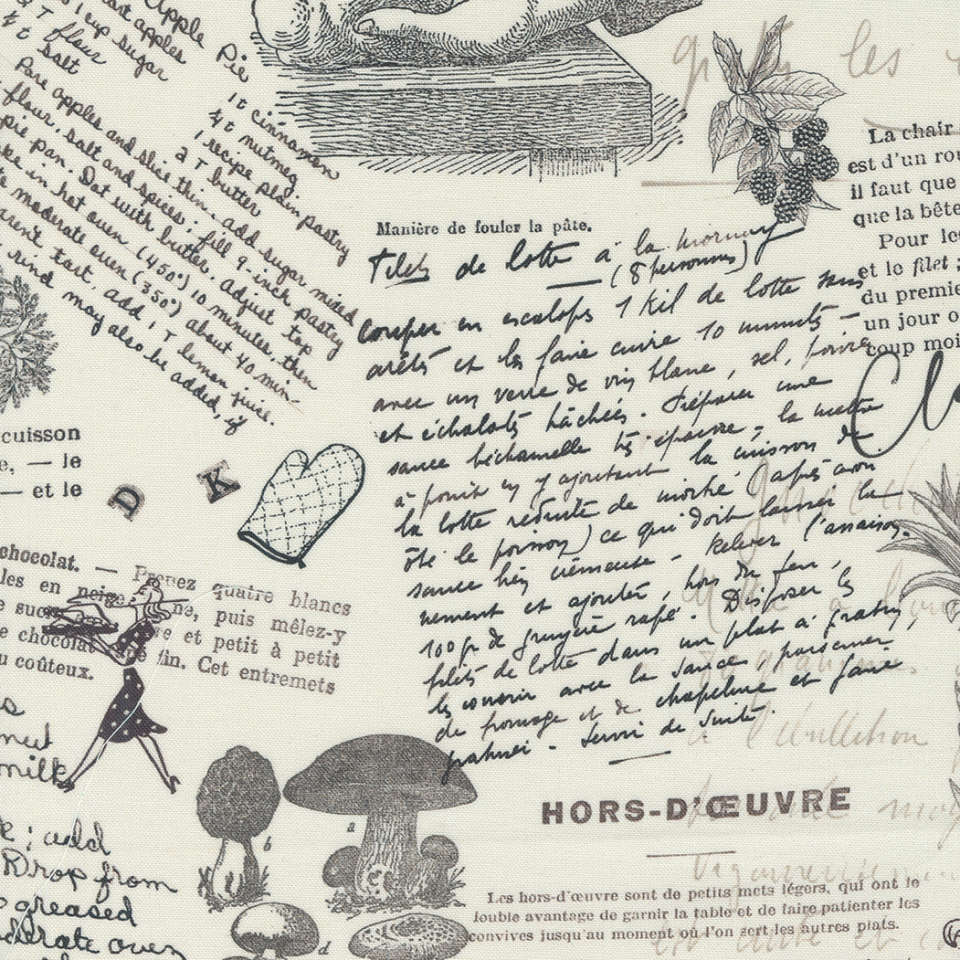 Apple Pie
tart apples
1 cup sugar
T flour
¼ t salt
1 t cinnamon
¼ t nutmeg
2 T butter
1 recipe plain pastry
Pare apples and slice thin. add sugar mixed
flour, salt and spices; fill 9-inch pastry
pie pan. Dot with butter. Adjust top
in hot oven (450°) 10 minutes, then
moderate oven (350°) about 40 min-
tart, add 1 T lemon juice.
rind may also be added, if
les
La chair
est d'un rou
il faut que
que la bête
Pour les
et le filet ;
du premie
un jour o
coup moi
Manière de fouler la pâte.
Filets de lotte à la
(8 personnes)
Couper en escalops 1 Kil de lotte sans
arêts et les faire cuire 10 minuts –
avec un verre de vin blanc, sel, poivre
et échalots hâchées. Préparer une
sauce béchamelle très épaisse, la mettre
à point en y ajoutant la cuisson de
la lotte réduite de moitié (après avoir
ôté le poisson) ce qui doit laisser la
sauce très crémeuse – Relever l'assaison-
nement et ajouter, hors du feu,
100 gr de gruyère rapé. Disposer les
filets de lotte dans un plat à gratin,
les couvrir avec la sauce, parsemer
de fromage et de chapelure et faire
gratiner – Servir de suite.
cuisson
e, — le
— et le
D K
chocolat. — Prenez quatre blancs
les en neige ne, puis mêlez-y
e sucre et petit à petit
e chocolat fin. Cet entremets
u coûteux.
milk
; add
Drop from
greased
moderate oven
a
b
d
HORS-D'ŒUVRE
Les hors-d'œuvre sont de petits mets légers, qui ont le
double avantage de garnir la table et de faire patienter les
convives jusqu'au moment où l'on sert les autres plats.